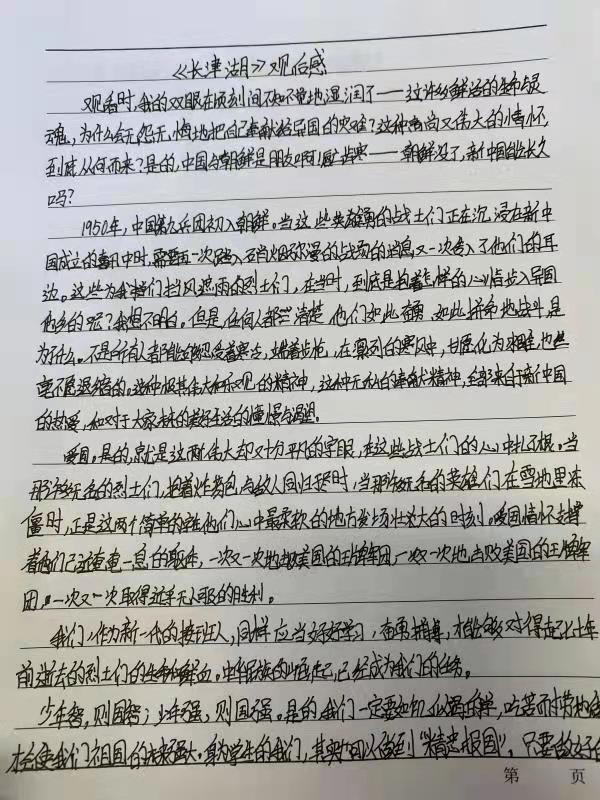 《长津湖》观后感
观看时,我的双眼在顷刻间不知不觉地湿润了——这许多鲜活的生命与灵
魂,为什么会无怨无悔地把自己奉献给异国的灾难?这种高尚又伟大的情怀,
到底从何而来?是的,中国与朝鲜是朋友啊!唇齿寒——朝鲜没了,新中国能长久
吗?
1950年,中国第九兵团初入朝鲜。当这些英雄勇的战士们正在沉浸在新中
国成立的喜讯中时,需要再一次踏入硝烟弥漫的战场的消息又一次传入了他们的耳
边。这些为我们挡风遮雨的烈士们,在当时,到底是抱着怎样的心情步入异国
他乡的呢?我想不明白。但是,任何人都清楚他们如此奋勇、如此拼命地战斗是
为什么。不是所有人都能够忍受着寒冷,握着步枪,在凛冽的寒风中,甘愿化为冰雕也
毫不愿退缩的。这种极其伟大和的精神,这种无私的奉献精神,全部来自于新中国
的热爱,和对于大家未来的美好生活的憧憬与渴望。
爱国。是的,就是这两个伟大却又十分平凡的字眼,在这些战士们的心中扎了根。当
那许多无名的烈士们,抱着炸药包与敌人同归于尽时,当那许多无名的英雄们在雪地里冻
僵时,正是这两个简单的字在他们心中最柔软的地方发扬壮大的时刻。爱国情怀支撑
着他们已近奄奄一息的躯体,一次又一次地击败美国的王牌军团,一次又一次地击败美国的王牌军
团,一次又一次取得近乎无人可及的胜利。
我们,作为新一代的接班人,同样应当好好学习,奋勇拼搏,才能够对得起七十年
前逝去的烈士们的生命和鲜血。中华民族的崛起,已经成为我们的任务。
少年智,则国智;少年强,则国强。是的,我们一定要如饥似渴的学,吃苦耐劳地
才会使我们祖国的未来强大。身为学生的我们,其实可以做到“精忠报国”,只要做好自
第 页